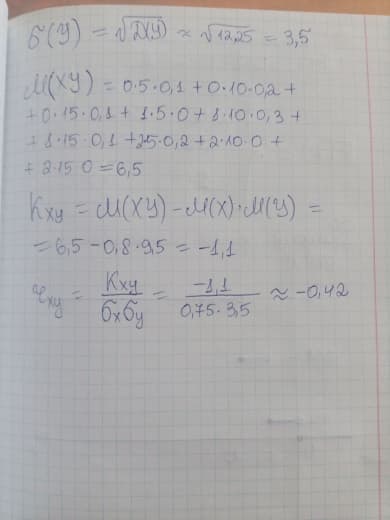 σ(Y) = √D(Y) ≈ √12,25 = 3,5
M(XY) = 0·5·0,1 + 0·10·0,2 +
+ 0·15·0,1 + 1·5·0 + 1·10·0,3 +
+ 1·15·0,1 + 2·5·0,2 + 2·10·0 +
+ 2·15·0 = 6,5
Kxy = M(XY) – M(X)·M(Y) =
= 6,5 – 0,8·9,5 = –1,1
rxy = Kxy / σxσy = –1,1 / 0,75·3,5 ≈ –0,42